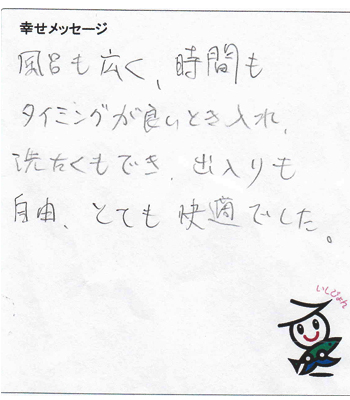 幸せメッセージ
風呂も広く、時間も
タイミングが良いとき入れ、
洗たくもでき、出入りも
自由、とても快適でした。
いしぴょん